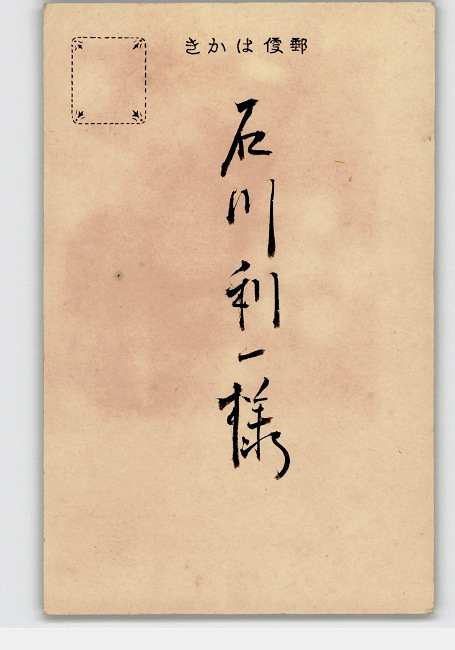 郵便はかき
石川利一様